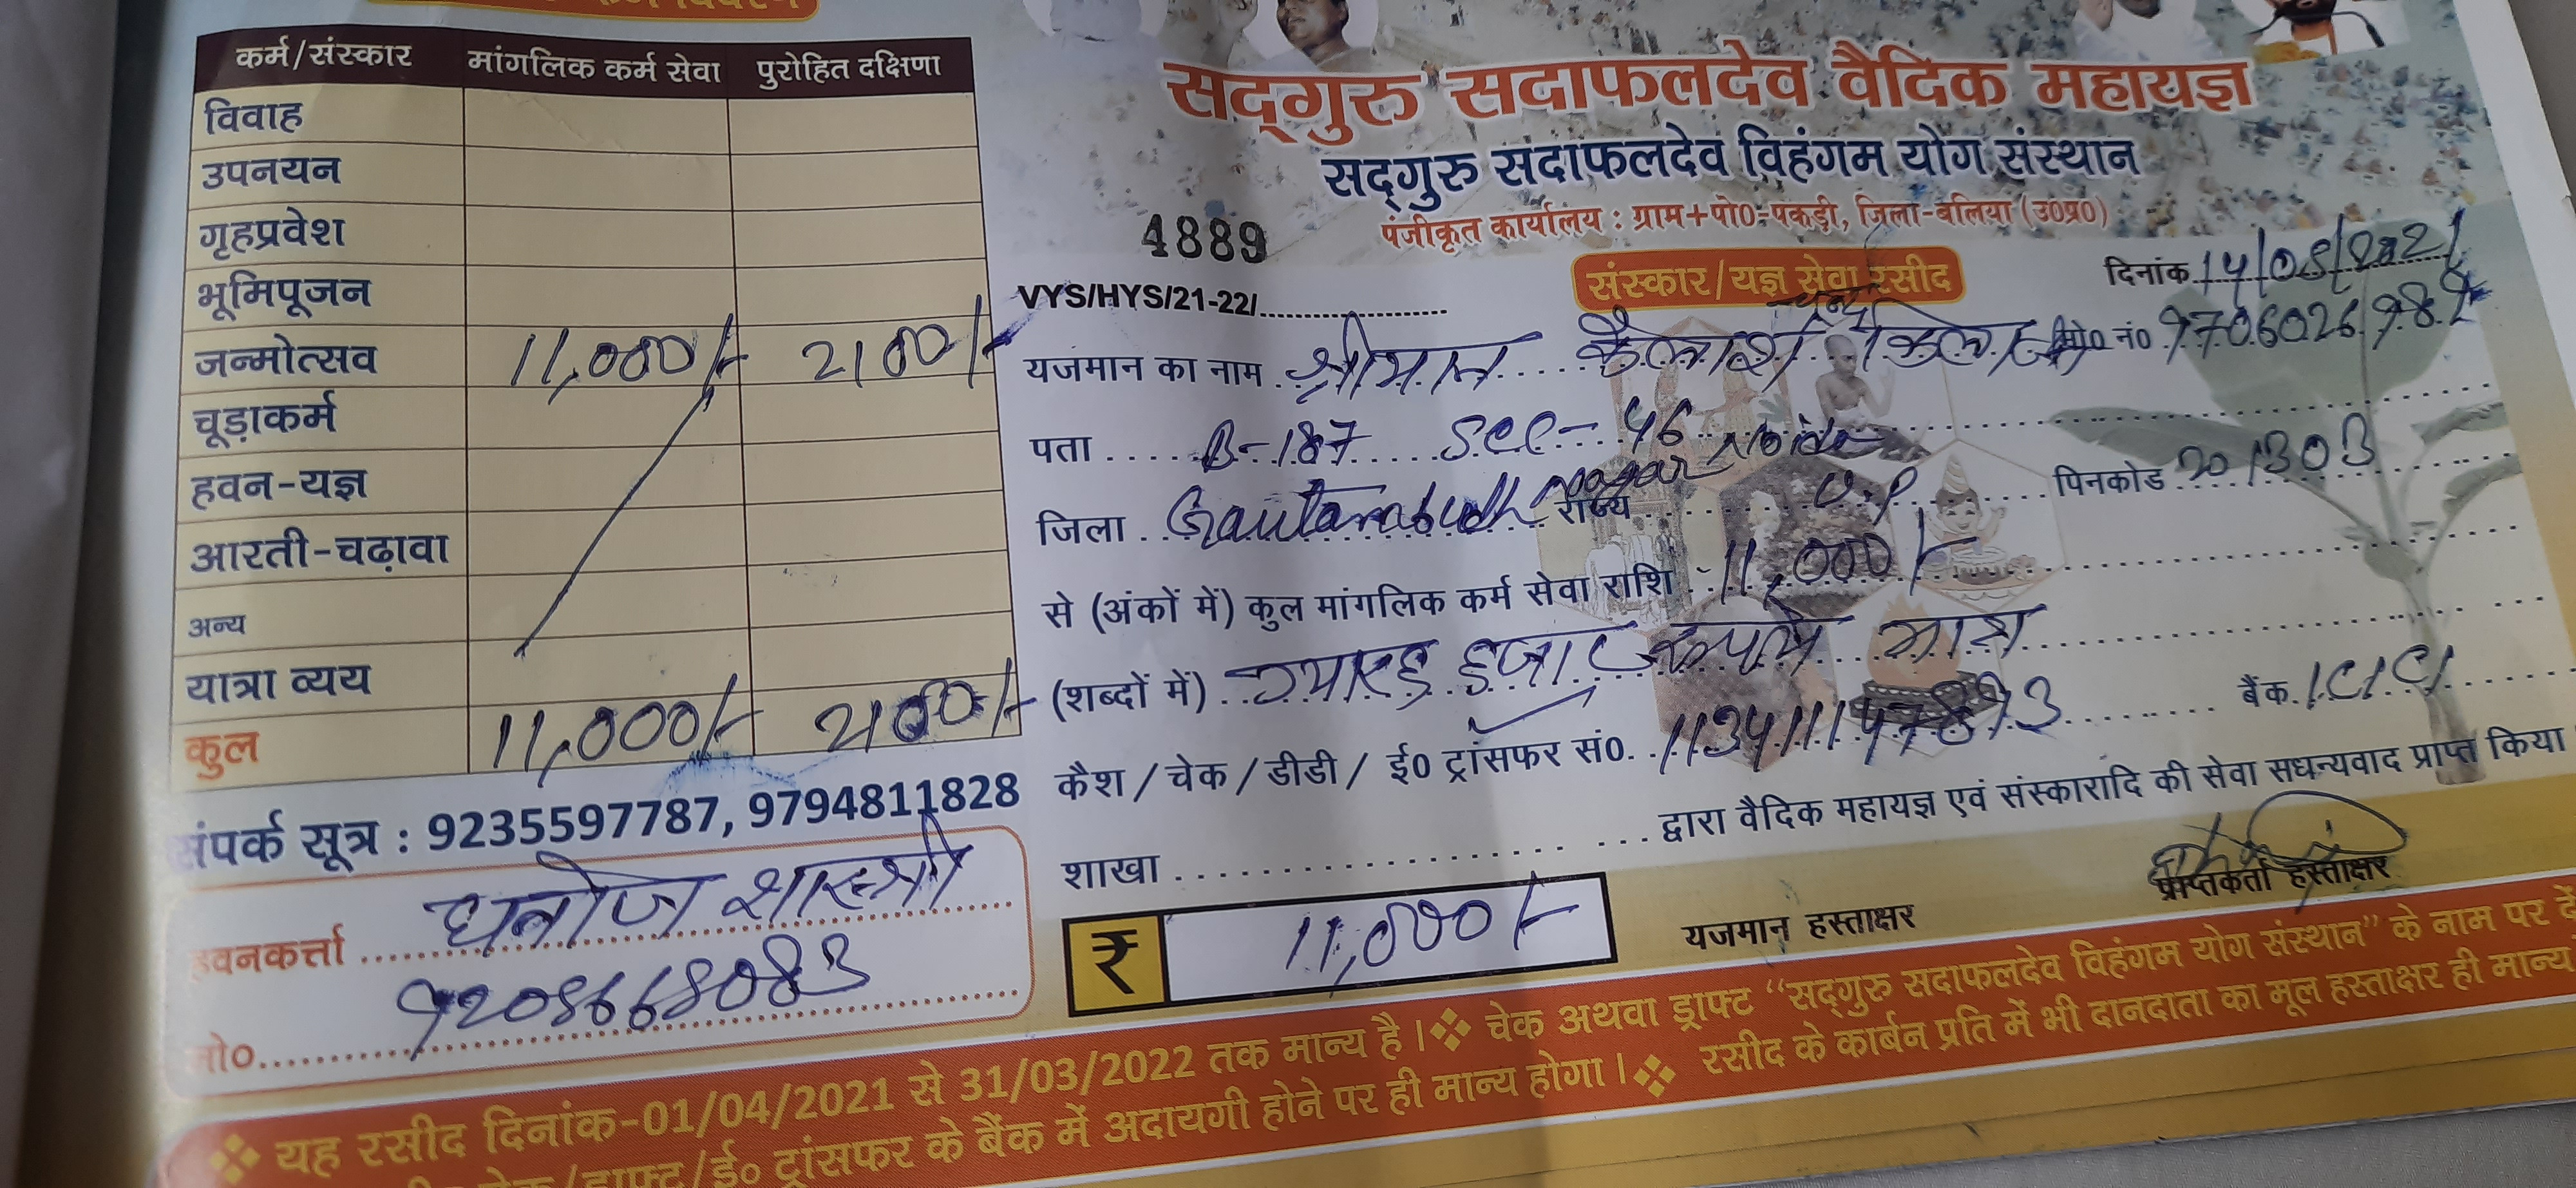 कर्म/संस्कार मांगलिक कर्म सेवा पुरोहित दक्षिणा
विवाह
उपनयन
गृहप्रवेश
भूमिपूजन
जन्मोत्सव 11,000/- 2100/-
चूड़ाकर्म
हवन-यज्ञ
आरती-चढ़ावा
अन्य
यात्रा व्यय
कुल 11,000/- 2100/-
संपर्क सूत्र : 9235597787, 9794811828
हवनकर्त्ता शास्त्री
मो०. 9208668083
सद्‌गुरु सदाफलदेव वैदिक महायज्ञ
सद्‌गुरु सदाफलदेव विहंगम योग संस्थान
पंजीकृत कार्यालय : ग्राम+पो0-पकड़ी, जिला-बलिया (उ0प्र0)
4889
संस्कार/यज्ञ सेवा रसीद
दिनांक 14/05/2021
VYS/HYS/21-22/
यजमान का नाम श्रीमान कैलाश चन्द्र मो0 नं0
पता B-187 Sec-46 Noida
जिला Gautambudh nagar राज्य U.P पिनकोड 201303
से (अंकों में) कुल मांगलिक कर्म सेवा राशि 11,000/-
(शब्दों में) ग्यारह हजार रूपये मात्र
कैश / चेक / डीडी / ई0 ट्रांसफर सं0. 113411147873 बैंक ICICI
शाखा द्वारा वैदिक महायज्ञ एवं संस्कारादि की सेवा सधन्यवाद प्राप्त किया
₹ 11,000/-
यजमान हस्ताक्षर प्राप्तकर्ता हस्ताक्षर
❖ यह रसीद दिनांक-01/04/2021 से 31/03/2022 तक मान्य है । ❖ चेक अथवा ड्राफ्ट “सद्‌गुरु सदाफलदेव विहंगम योग संस्थान” के नाम पर
चेक/ड्राफ्ट/ई० ट्रांसफर के बैंक में अदायगी होने पर ही मान्य होगा । ❖ रसीद के कार्बन प्रति में भी दानदाता का मूल हस्ताक्षर ही मान्य